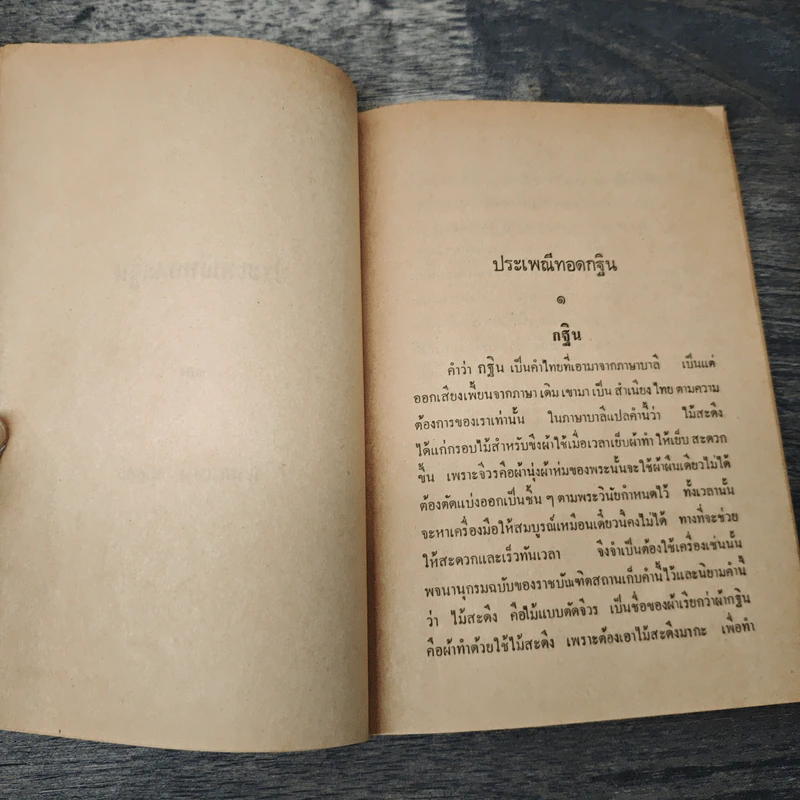 ประเพณีทอดกฐิน
๑
กฐิน
คำว่า กฐิน เป็นคำไทยที่เอามาจากภาษาบาลี เป็นแต่
ออกเสียงเพี้ยนจากภาษา เดิม เขามา เป็น สำเนียง ไทย ตามความ
ต้องการของเราเท่านั้น ในภาษาบาลีแปลคำนี้ว่า ไม้สะดึง
ได้แก่กรอบไม้สำหรับขึงผ้าใช้เมื่อเวลาเย็บผ้าทำ ให้เย็บ สะดวก
ขึ้น เพราะจีวรคือผ้านุ่งผ้าห่มของพระนั้นจะใช้ผ้าผืนเดียวไม่ได้
ต้องตัดแบ่งออกเป็นชิ้น ๆ ตามพระวินัยกำหนดไว้ ทั้งเวลานั้น
จะหาเครื่องมือให้สมบูรณ์เหมือนเดี๋ยวนี้คงไม่ได้ ทางที่จะช่วย
ให้สะดวกและเร็วทันเวลา จึงจำเป็นต้องใช้เครื่องเช่นนั้น
พจนานุกรมฉบับของราชบัณฑิตสถานเก็บคำนี้ไว้และนิยามคำนี้
ว่า ไม้สะดึง คือไม้แบบตัดจีวร เป็นชื่อของผ้าเรียกว่าผ้ากฐิน
คือผ้าทำด้วยใช้ไม้สะดึง เพราะต้องเอาไม้สะดึงมากะ เพื่อทำ